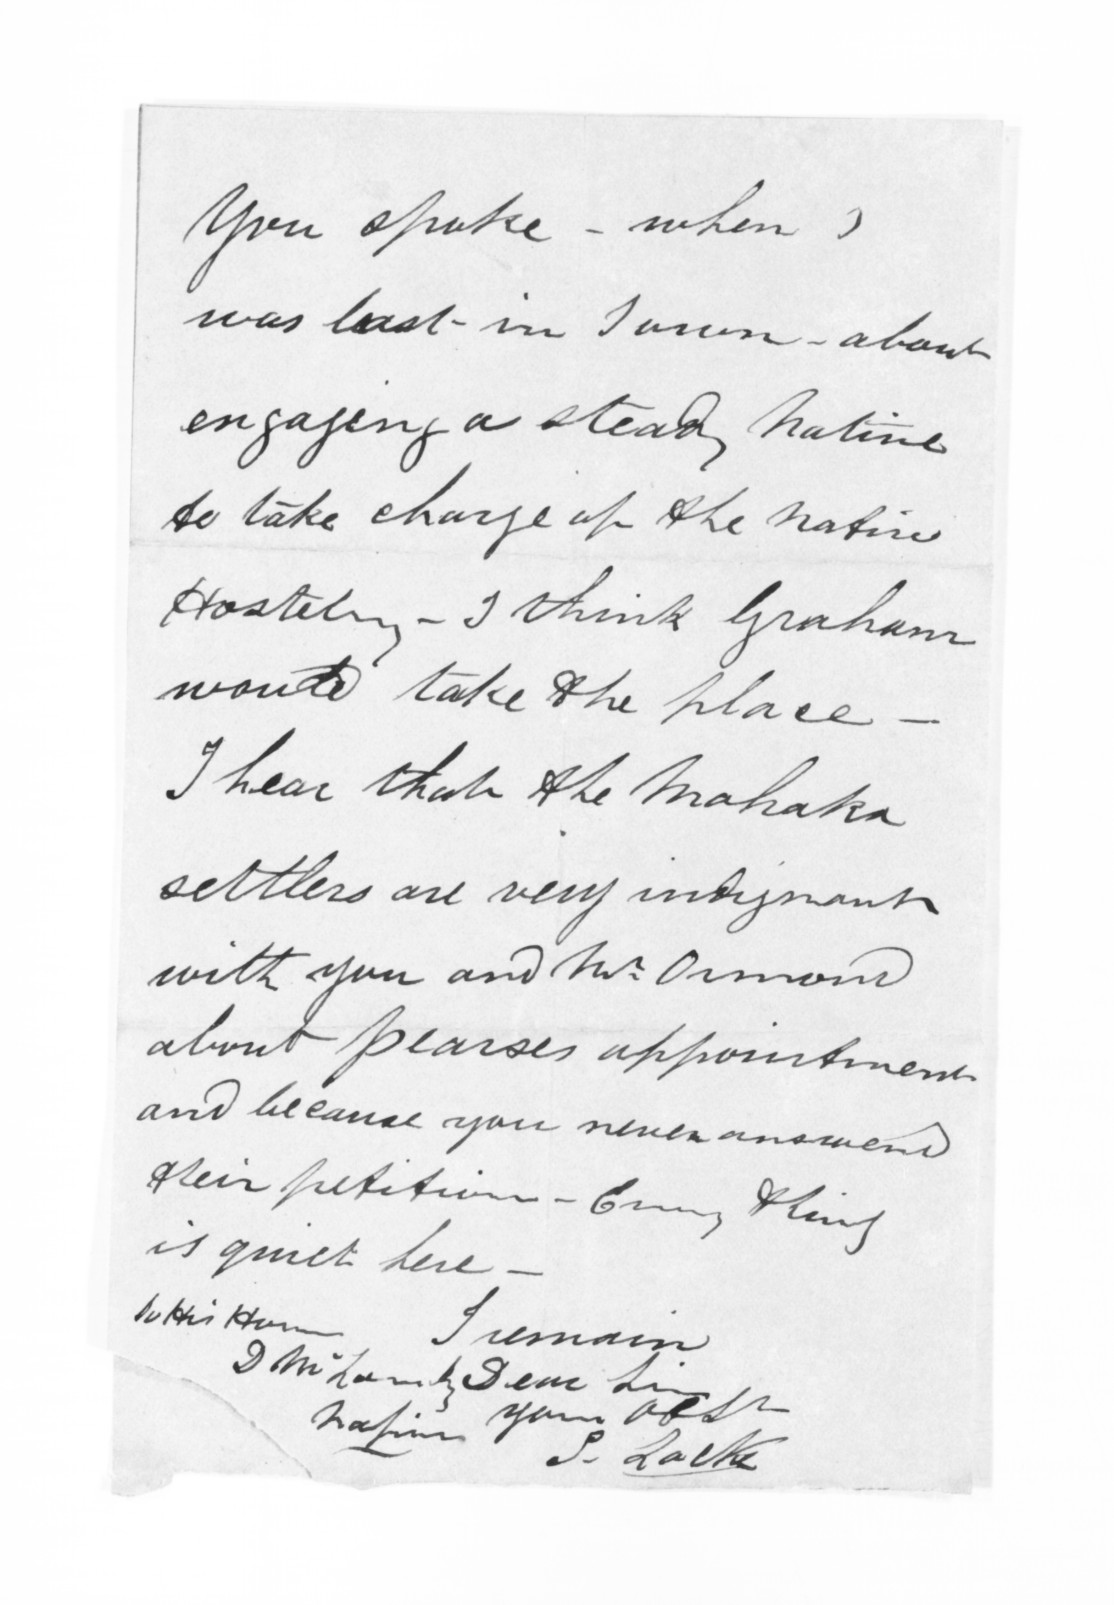 You spoke - when I
was last - in Town - about
engaging a steady Native
to take charge of the Native
Hostelry - I think Graham
would take the place -
I hear that the Mohaka
settlers are very indignant
with you and Mr. Ormond
about Pearses appointment
and because you never answered
their petition - Every thing
is quiet here -
I remain
Dear Sir
Your Obt St
S. Locke
To His Honor
D McLean Esq
Napier